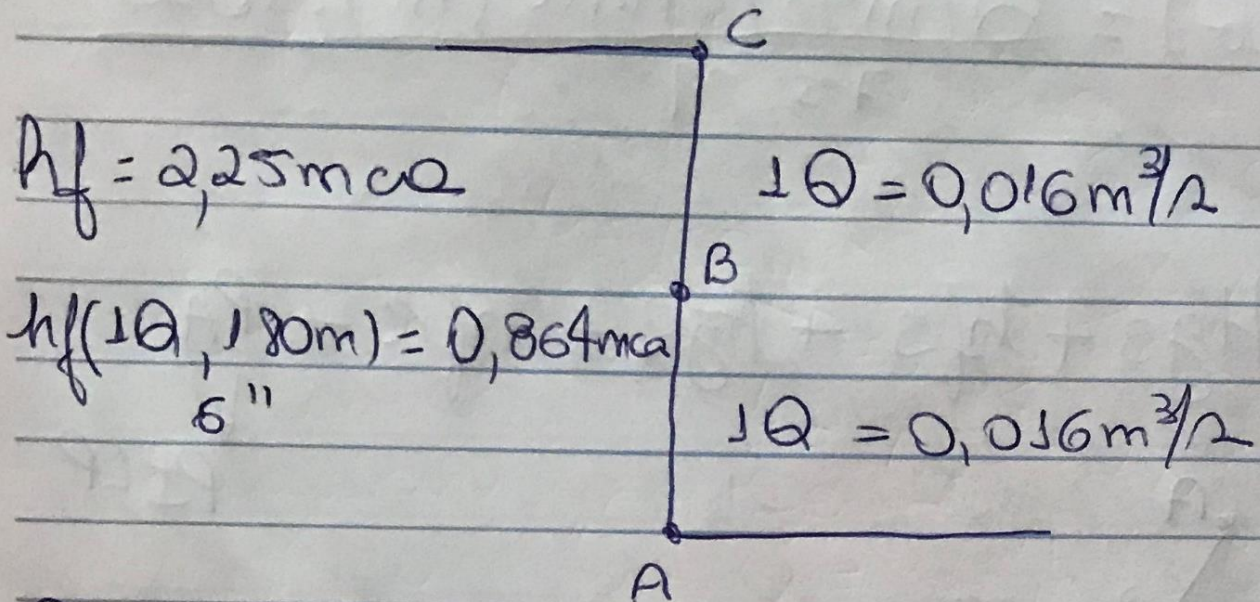 C
hf = 2,25mca 1Q = 0,016m³/s
B
hf(1Q, 180m) = 0,864mca
6"
1Q = 0,016m³/s
A